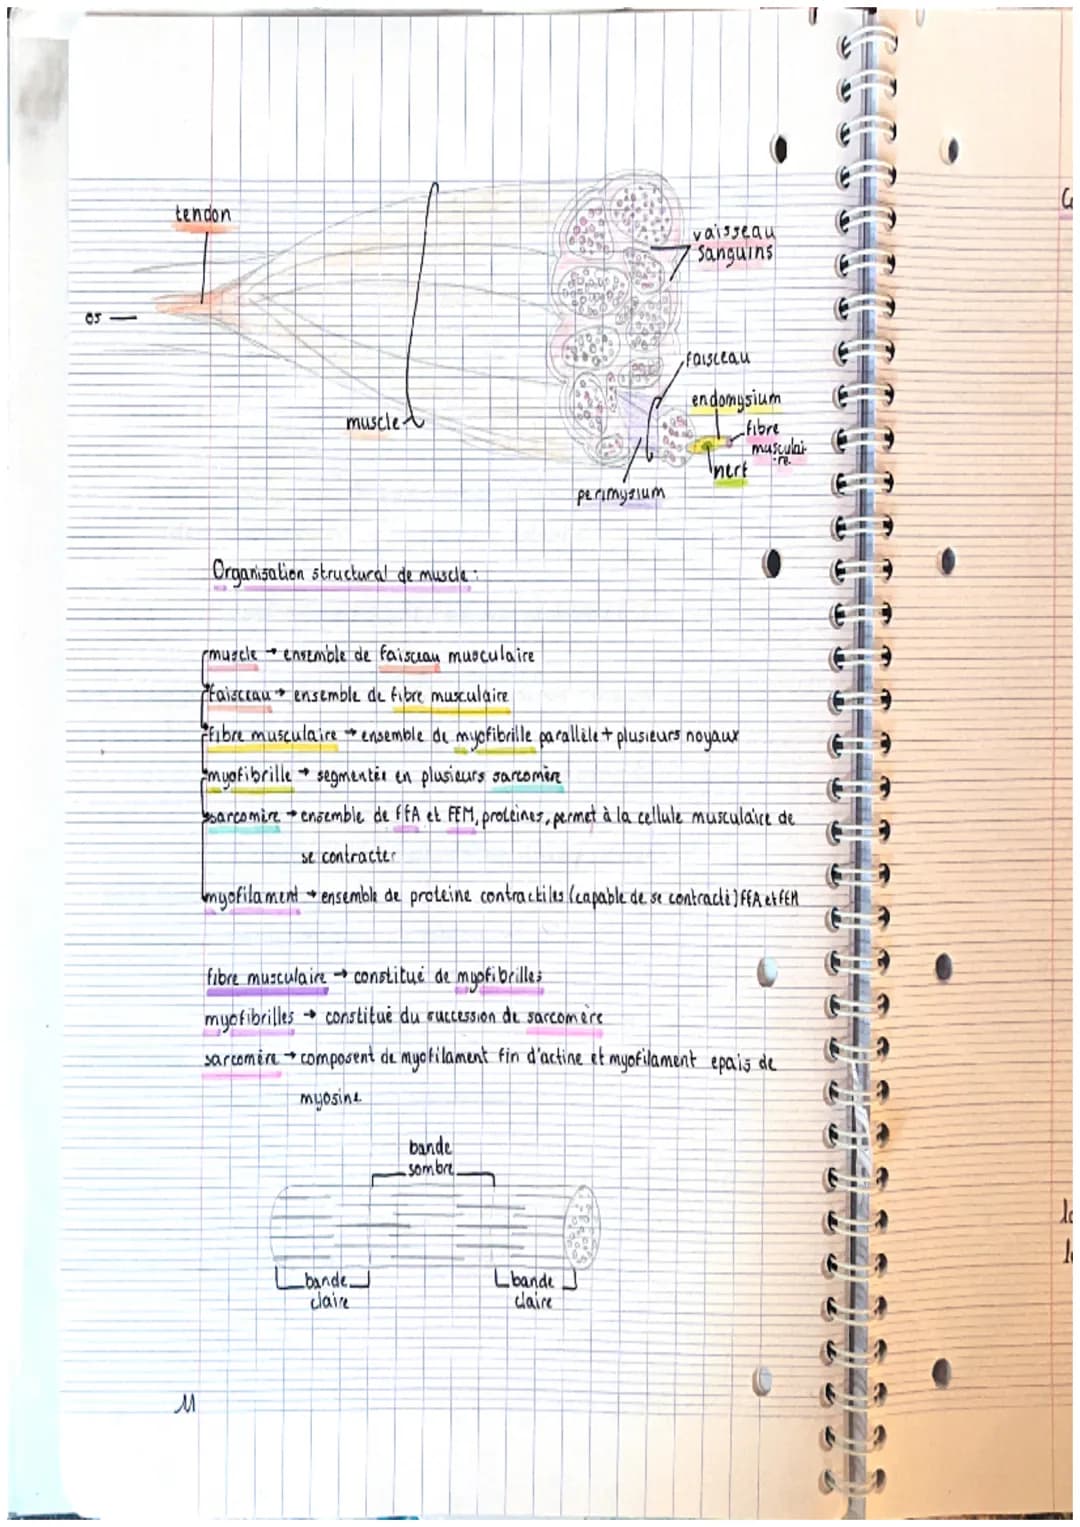 tendon
vaisseau
sanguins
os
faisceau
endomysium
muscle
fibre
musculai-
re.
nerf
perimysium
Organisation structural de muscle :
muscle → ensemble de faisceau musculaire
faisceau → ensemble de fibre musculaire
fibre musculaire → ensemble de myofibrille parallèle + plusieurs noyaux
myofibrille → segmentée en plusieurs sarcomère
sarcomère → ensemble de FFA et FEM, protéines, permet à la cellule musculaire de
se contracter
myofilament → ensemble de proteine contractiles (capable de se contracté) FFA et FEM
fibre musculaire → constitué de myofibrilles
myofibrilles → constitué du succession de sarcomère
sarcomère → composent de myofilament fin d'actine et myofilament epais de
myosine
bande
sombre
bande
claire
bande
claire